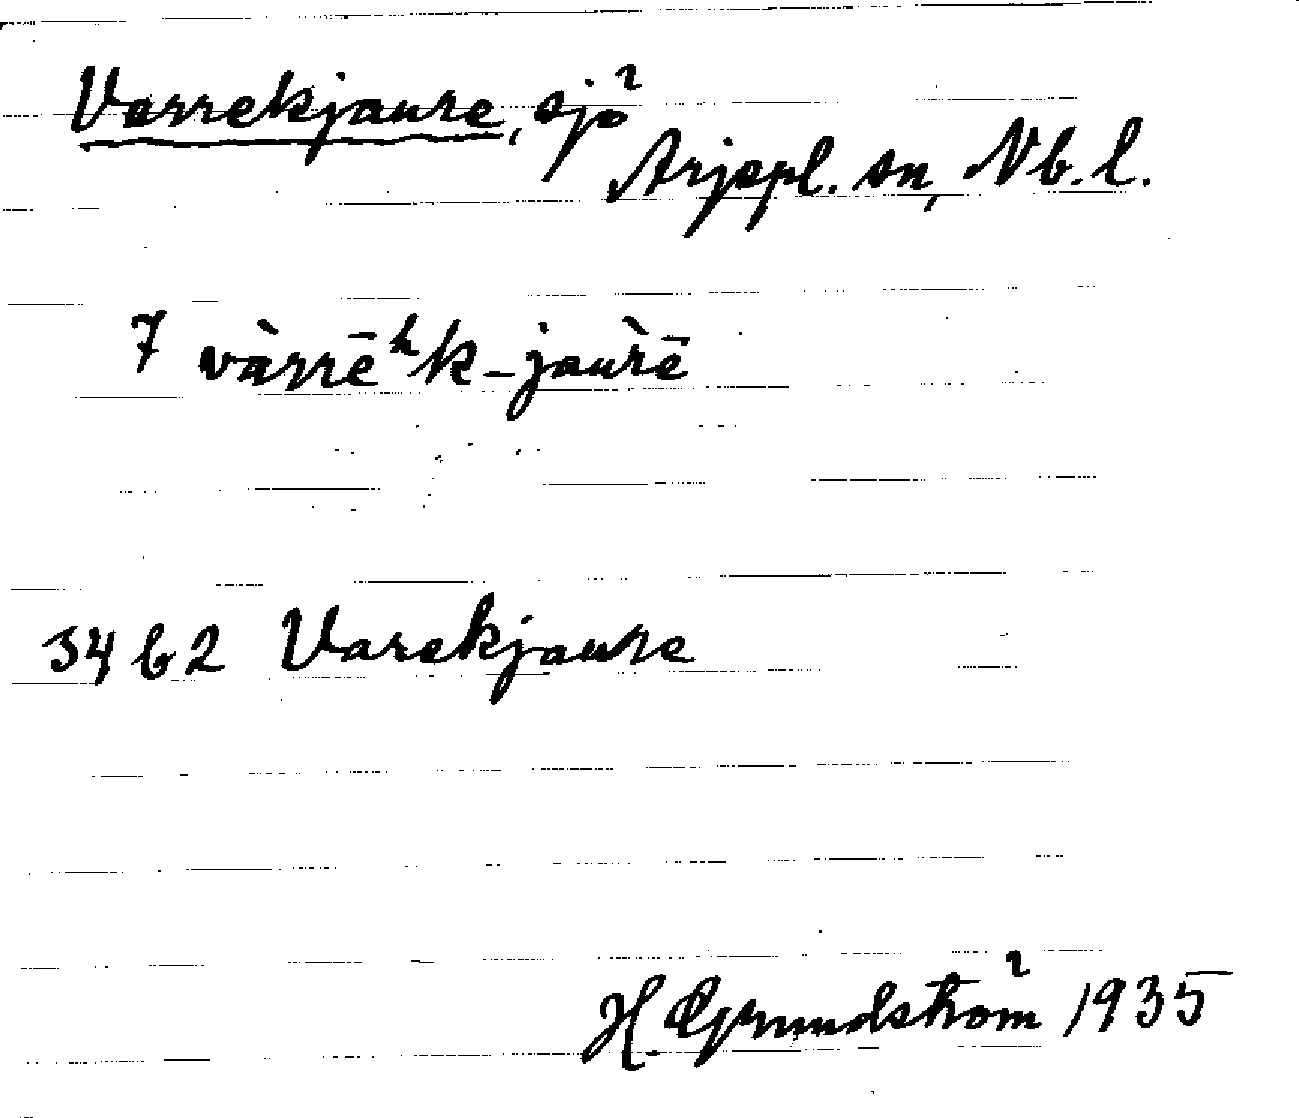 Varrekjaure, sjö
Arjepl. sn, Nb. l.
7 vàrrēʰk-jaùrē
34 b 2 Varekjaure
H. Grundström 1935